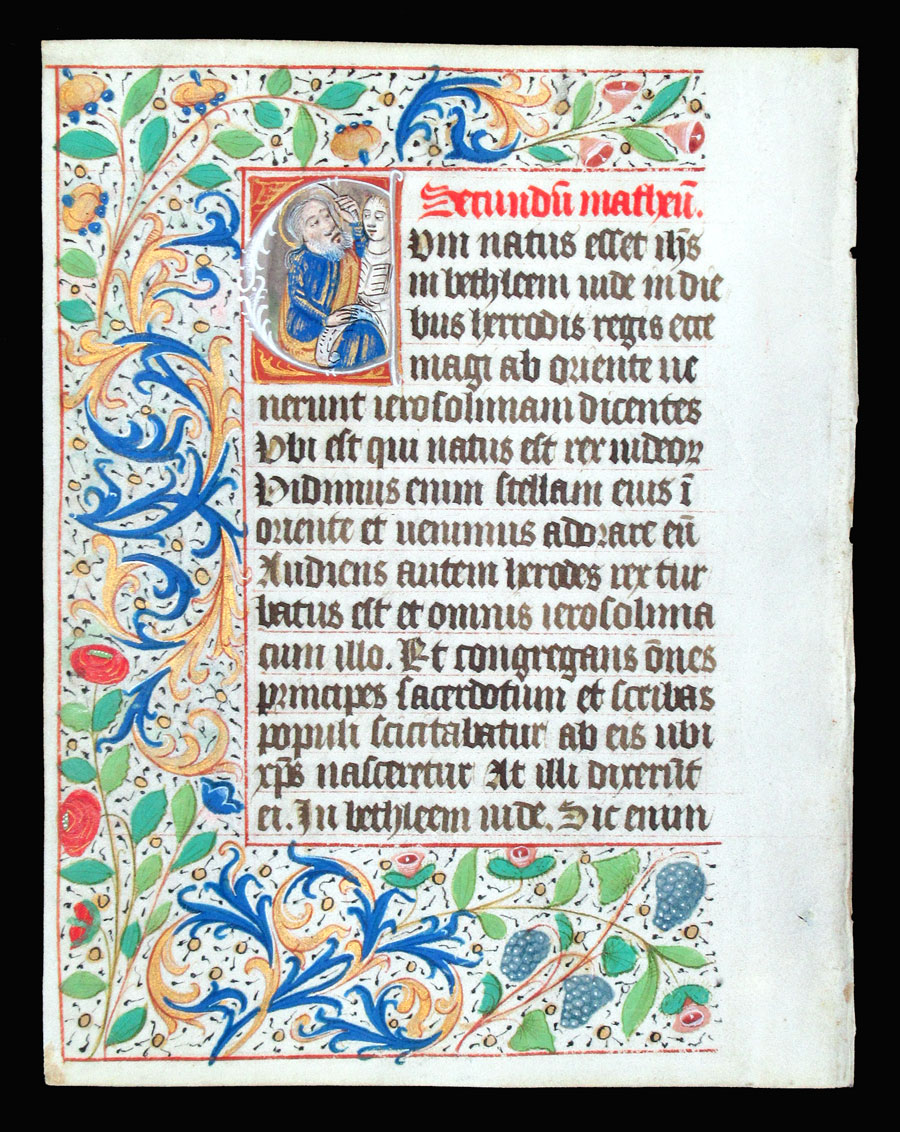 Secundū matheū.
Cum natus esset ihs
in bethleem iude in die
bus herrodis regis ecce
magi ab oriente ue
nerunt ierosolimam dicentes
Vbi est qui natus est rex iudeoꝝ
Vidimus enim stellam eius ī
oriente et uenimus adorare eū
Audiens autem herodes rex tur
batus est et omnis ierosolima
cum illo. Et congregans ōnes
principes sacerdotium et scribas
populi scicitabatur ab eis ubi
xp̄s nasceretur At illi dixerūt
ei. In bethleem iude. Sic enim